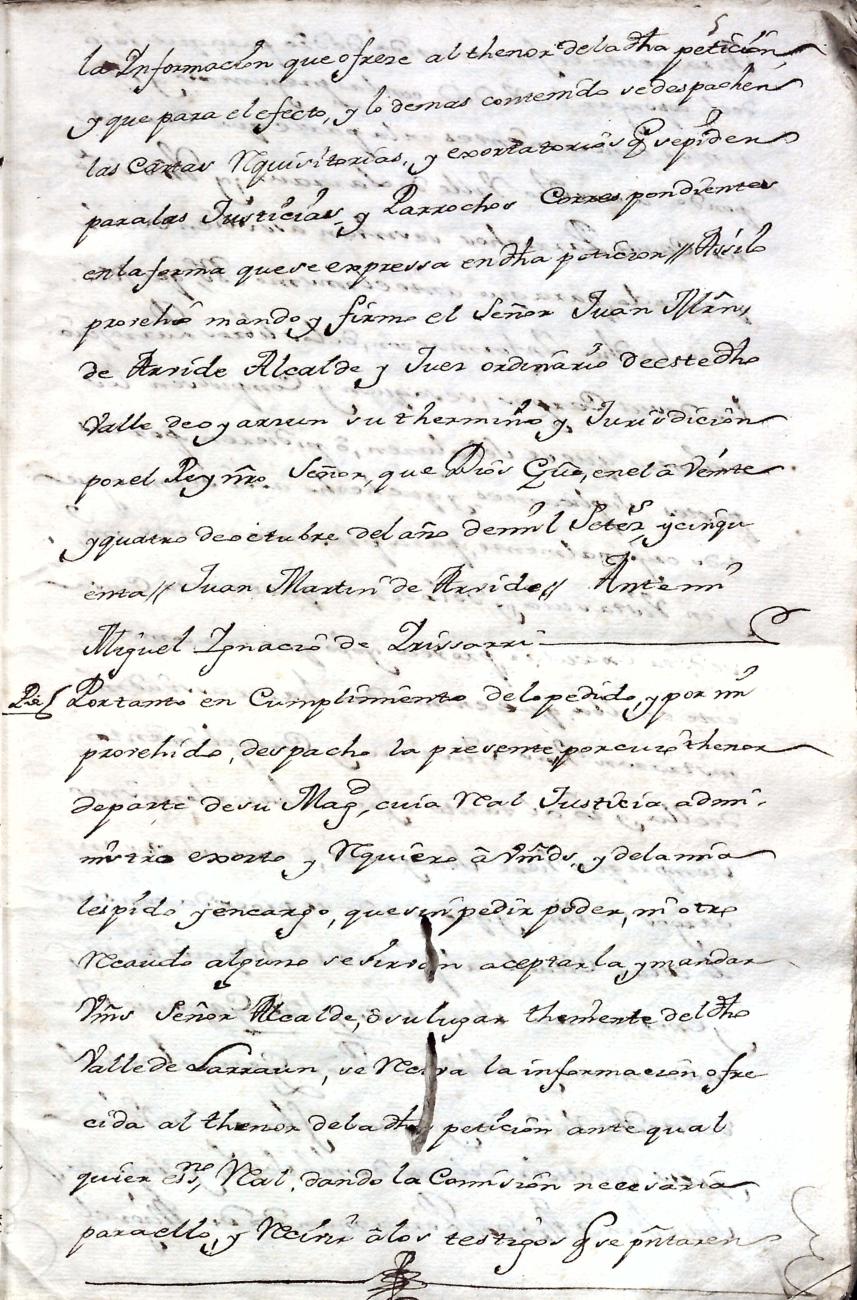 5
la Informacion que ofreze al thenor de la dha peticion,
y que para el efecto, y lo demas contenido se despachen
las Cartas Requisitorias, y exortatorias q̃ se piden
para las Justicias, y Parrochos Correspondientes
en la forma que se expressa en dha peticion // Assi lo
provehió mandó y firmó el Señor Juan Mrñ,
de Arvide Alcalde y Juez ordinario de este dho
Valle de oyarzun su thermino y Jurisdicion
por el Rey nr̃o Señor, que Dios Gũe, en el â Veinte
y quatro de octubre del año de mil Setezs, y cinqu
enta // Juan Martin de Arvide // Ante mi
Miguel Ignacio de Yrissarri
Por tanto en Cumplimiento de lo pedido, y por mi
provehido, despacho la presente, por cuio thenor
de parte de su Magd, cuia Real Justicia admi-
nistro exorto y Requiero â Vm̃ds, y de la mia
les pido y encargo, que sin pedir poder, ni otro
Recaudo alguno se sirvan aceptarla, y mandar
Vm̃s Señor Alcalde, ô su lugar theniente del dho
Valle de Larraun, se Reciva la informacion ofre
cida al thenor de la dha peticion ante qual
quier essno, Real, dando la Comision necesaria
para ello, y Recivir â los testigos q̃ se pñtaren